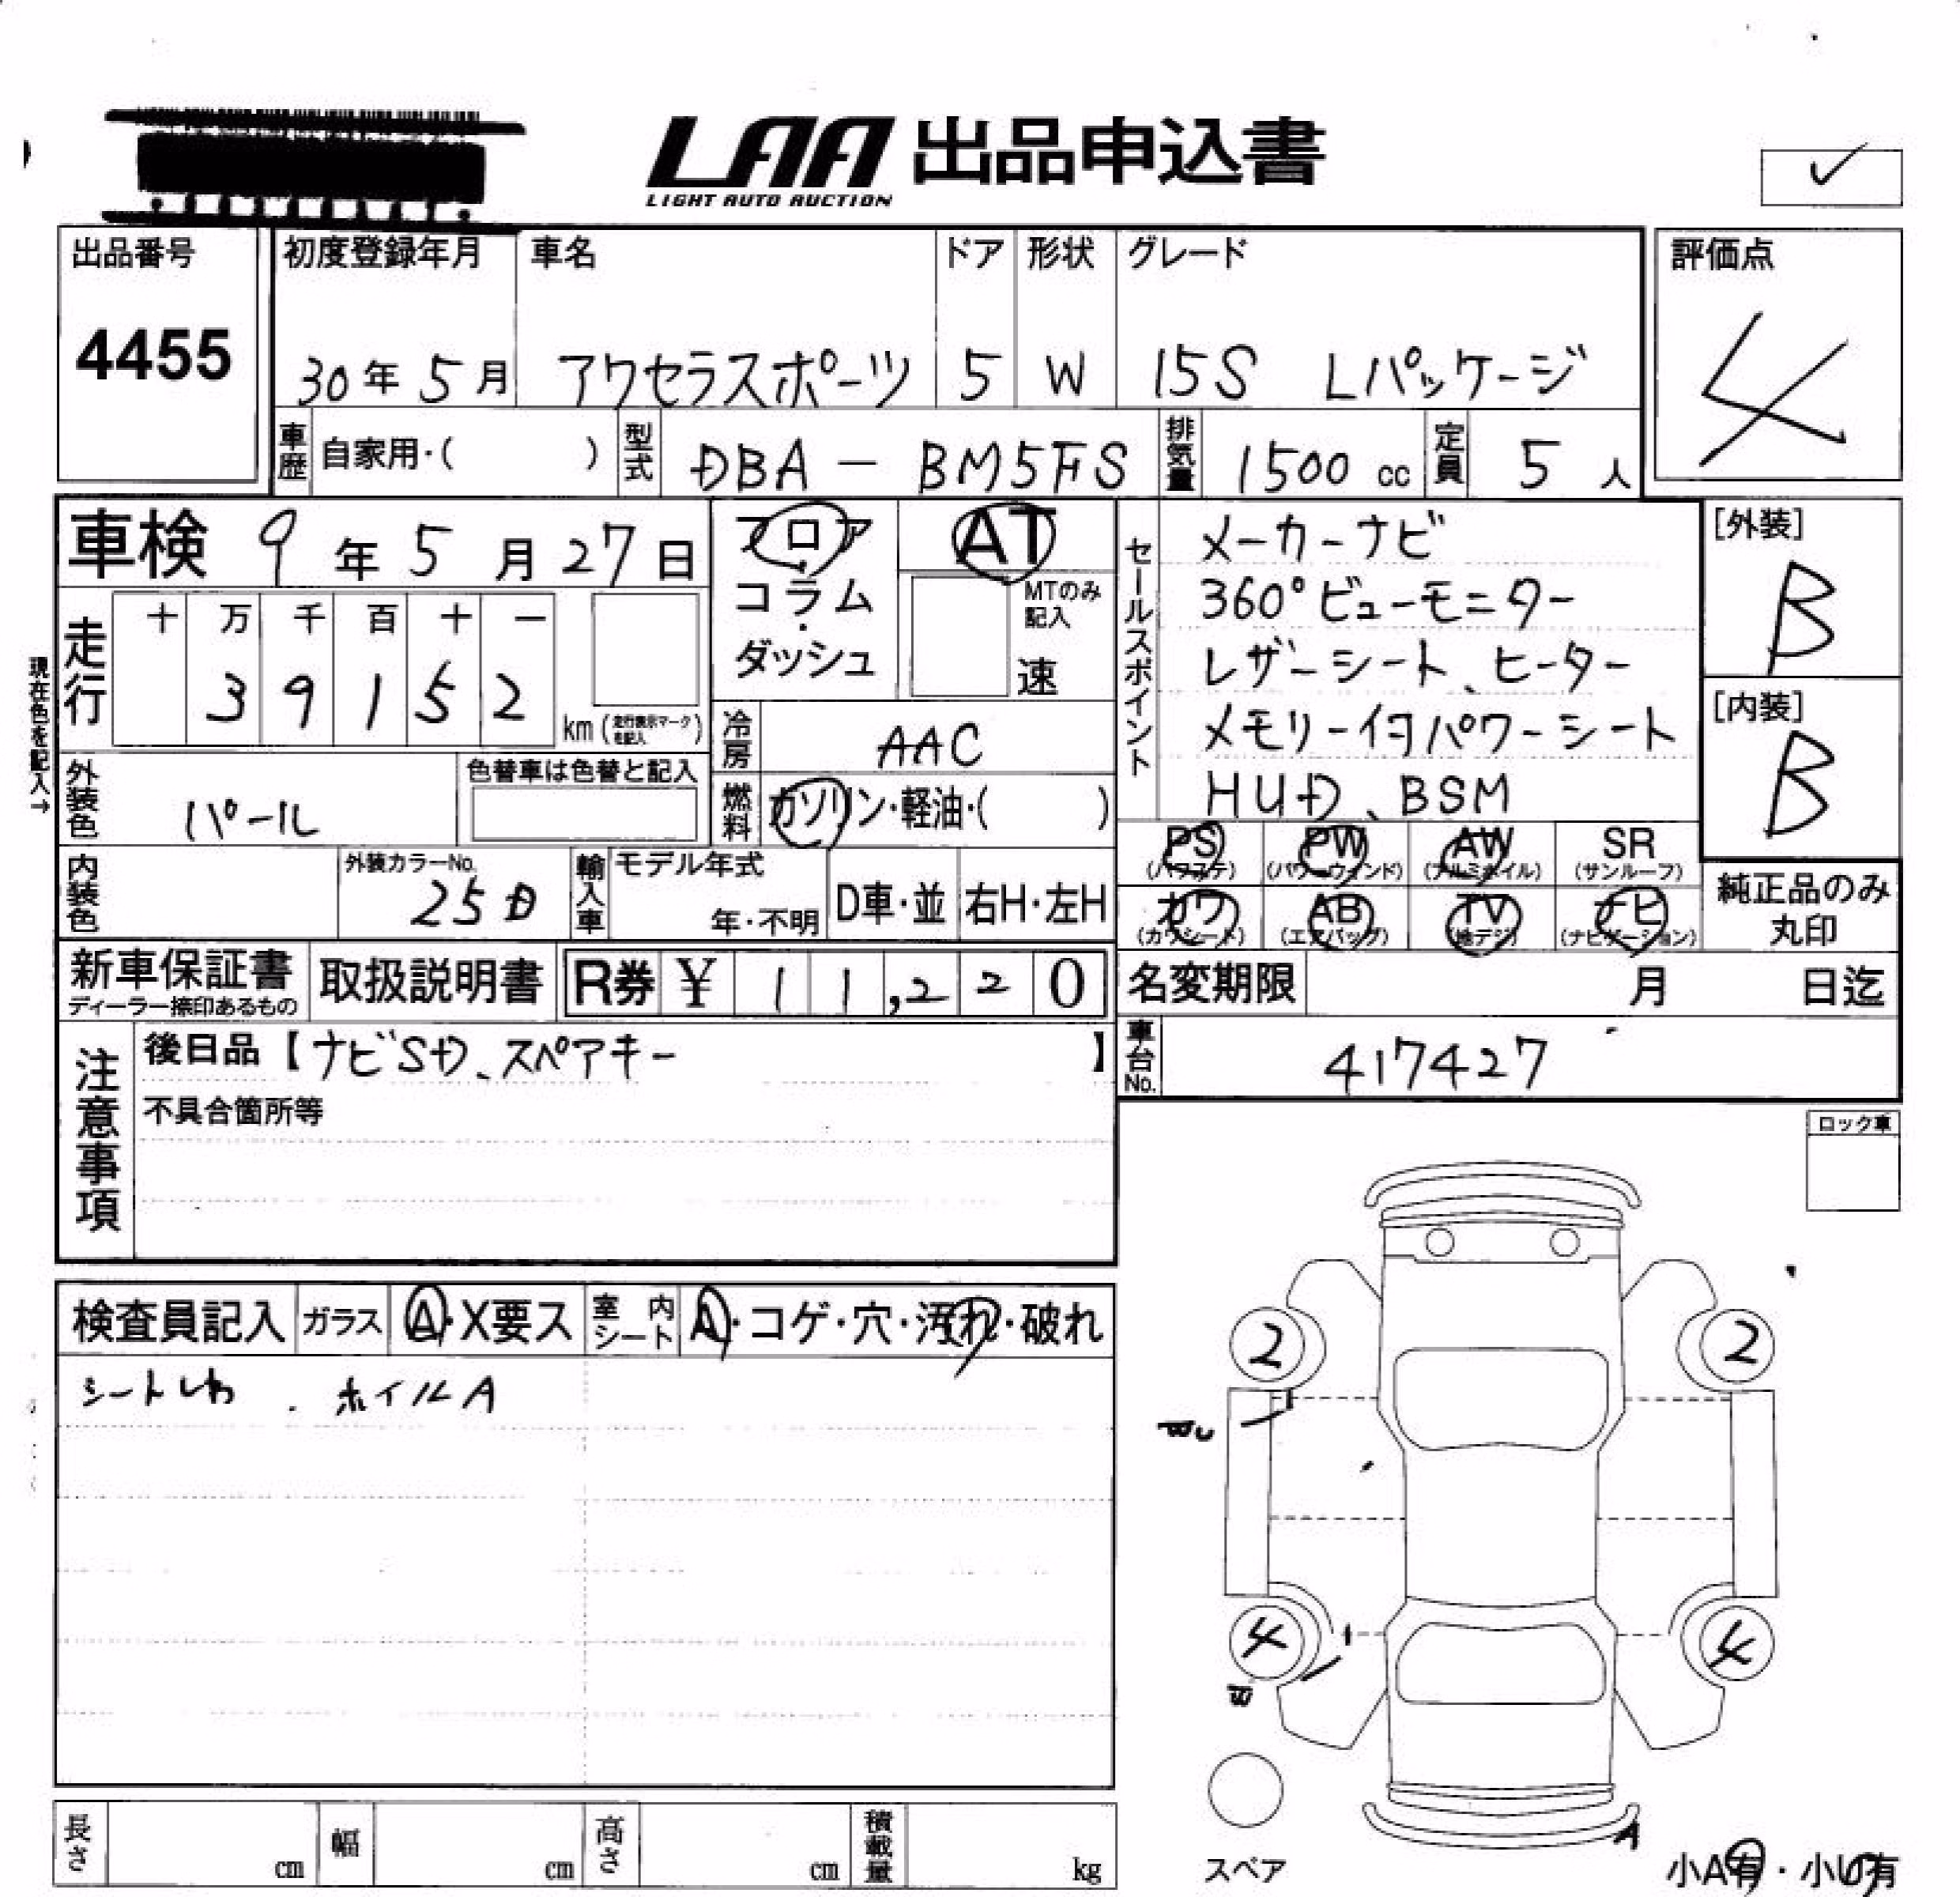 LAA 出品申込書
LIGHT AUTO AUCTION
出品番号 初度登録年月 車名 ドア 形状 グレード 評価点
4455 30年5月 アクセラスポーツ 5 W 15S Lパッケージ 4
車歴 自家用・( ) 型式 DBA-BM5FS 排気量 1500cc 定員 5人
車検 9年5月27日 フロア・コラム・ダッシュ AT MTのみ記入 速
現在色を記入→
走行 十 万 千 百 十 一
39152 km (走行表示マークを記入)
冷房 AAC
外装色 パール 色替車は色替と記入
燃料 ガソリン・軽油・( )
セールスポイント
メーカーナビ
360°ビューモニター
レザーシート、ヒーター
メモリー付パワーシート
HUD、BSM
[外装]
B
[内装]
B
内装色 外装カラーNo. 25D 輸入車 モデル年式 年・不明 D車・並 右H・左H
PS (パワステ) PW (パワーウィンド) AW (アルミホイル) SR (サンルーフ)
カワ (カワシート) AB (エアバッグ) TV (地デジ) ナビ (ナビゲーション)
純正品のみ
丸印
新車保証書 ディーラー捺印あるもの 取扱説明書 R券 ¥ 11,220
名変期限 月 日迄
車台No. 417427
注意事項
後日品【ナビSD、スペアキー】
不具合箇所等
ロック車
検査員記入 ガラス A・X要ス 室内シート A・コゲ・穴・汚れ・破れ
シートしわ . ホイルA
2 2
4 4
A
スペア
小A有・小U有
長さ cm 幅 cm 高さ cm 積載量 kg